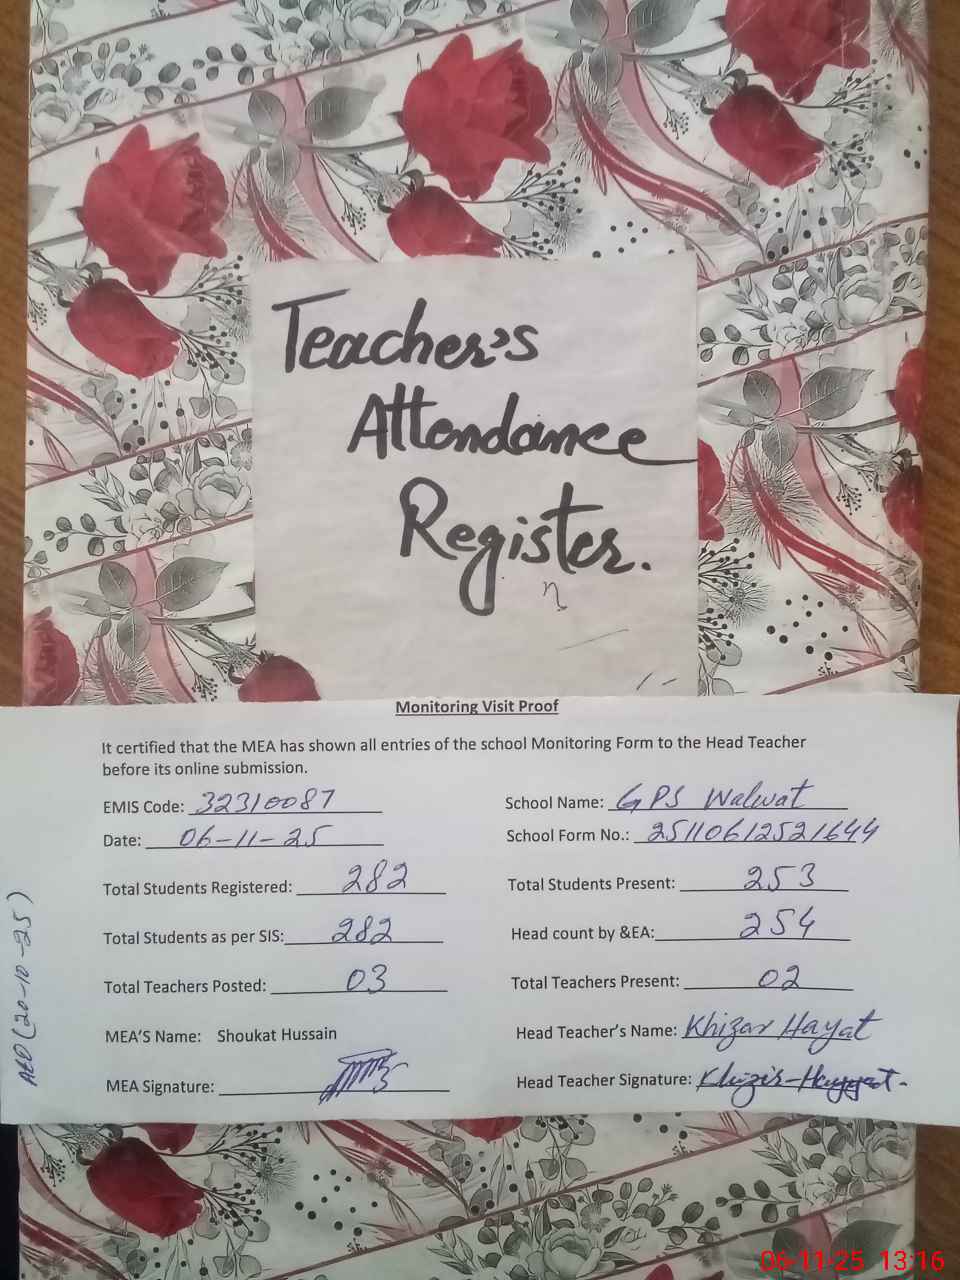 Teacher's
Attendance
Register.
Monitoring Visit Proof
It certified that the MEA has shown all entries of the school Monitoring Form to the Head Teacher
before its online submission.
EMIS Code: 32310087
School Name: GPS Walwat
Date: 06-11-25
School Form No.: 25110612521644
Total Students Registered: 282
Total Students Present: 253
Total Students as per SIS: 282
Head count by &EA: 254
Total Teachers Posted: 03
Total Teachers Present: 02
MEA'S Name: Shoukat Hussain
Head Teacher's Name: Khizar Hayat
MEA Signature:
Head Teacher Signature: Khizir Hayyat.
AEO (20-10-25)
06-11-25 13:16